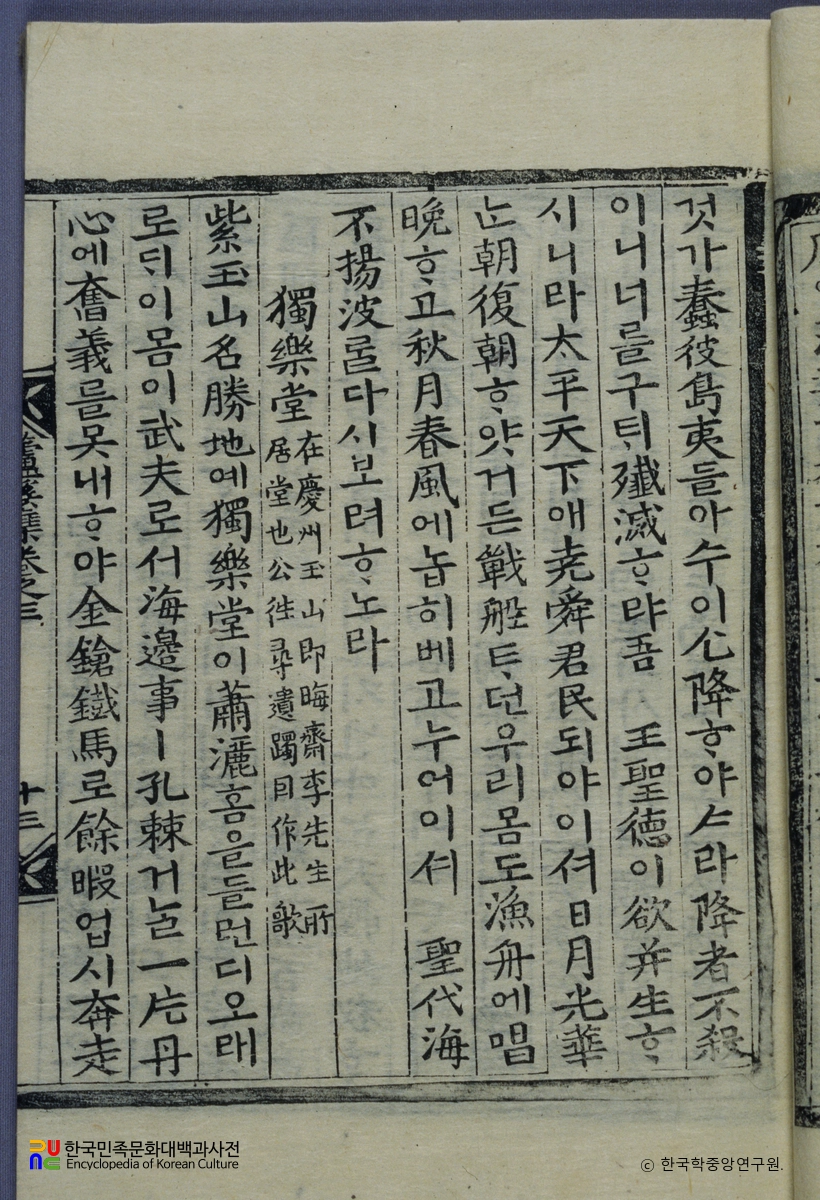 것가蠢彼島夷들아수이乞降ᄒᆞ야ᄉᆞ라降者不殺
이니너를구ᄐᆡ殲滅ᄒᆞ랴吾 王聖德이欲并生ᄒᆞ
시니라太平天下애堯舜君民되야이셔日月光華
ᄂᆞᆫ朝復朝ᄒᆞ얏거든戰船ᄐᆞ던우리몸도漁舟에唱
晩ᄒᆞ고秋月春風에놉히베고누어이셔 聖代海
不揚波ᄅᆞᆯ다시보려ᄒᆞ노라
獨樂堂
在慶州玉山即晦齋李先生所
居堂也公徃尋遺躅因作此歌
紫玉山名勝地예獨樂堂이蕭灑홈을들런디오래
로ᄃᆡ이몸이武夫로서海邊事ㅣ孔棘거ᄂᆞᆯ一片丹
心에奮義를못내ᄒᆞ야金鎗鐵馬로餘暇업시奔走
蘆溪集卷之三
十三
한국민족문화대백과사전
Encyclopedia of Korean Culture
© 한국학중앙연구원.